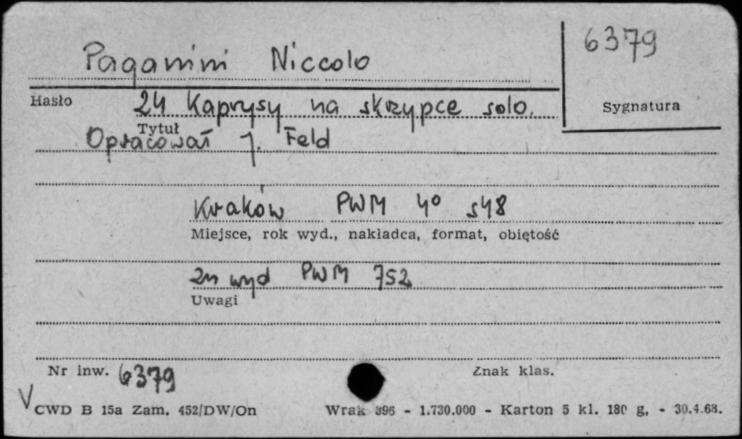 Paganini Niccolo 6379
Hasło 24 Kaprysy na skrzypce solo. Sygnatura
Tytuł
Opracował J. Feld
Kraków PWM 4° s48
Miejsce, rok wyd., nakładca, format, obiętość
zn wyd PWM 752
Uwagi
Nr inw. 6379 Znak klas.
V CWD B 15a Zam. 452/DW/On Wrak 396 - 1.730.000 - Karton 5 kl. 180 g, - 30.4.68.